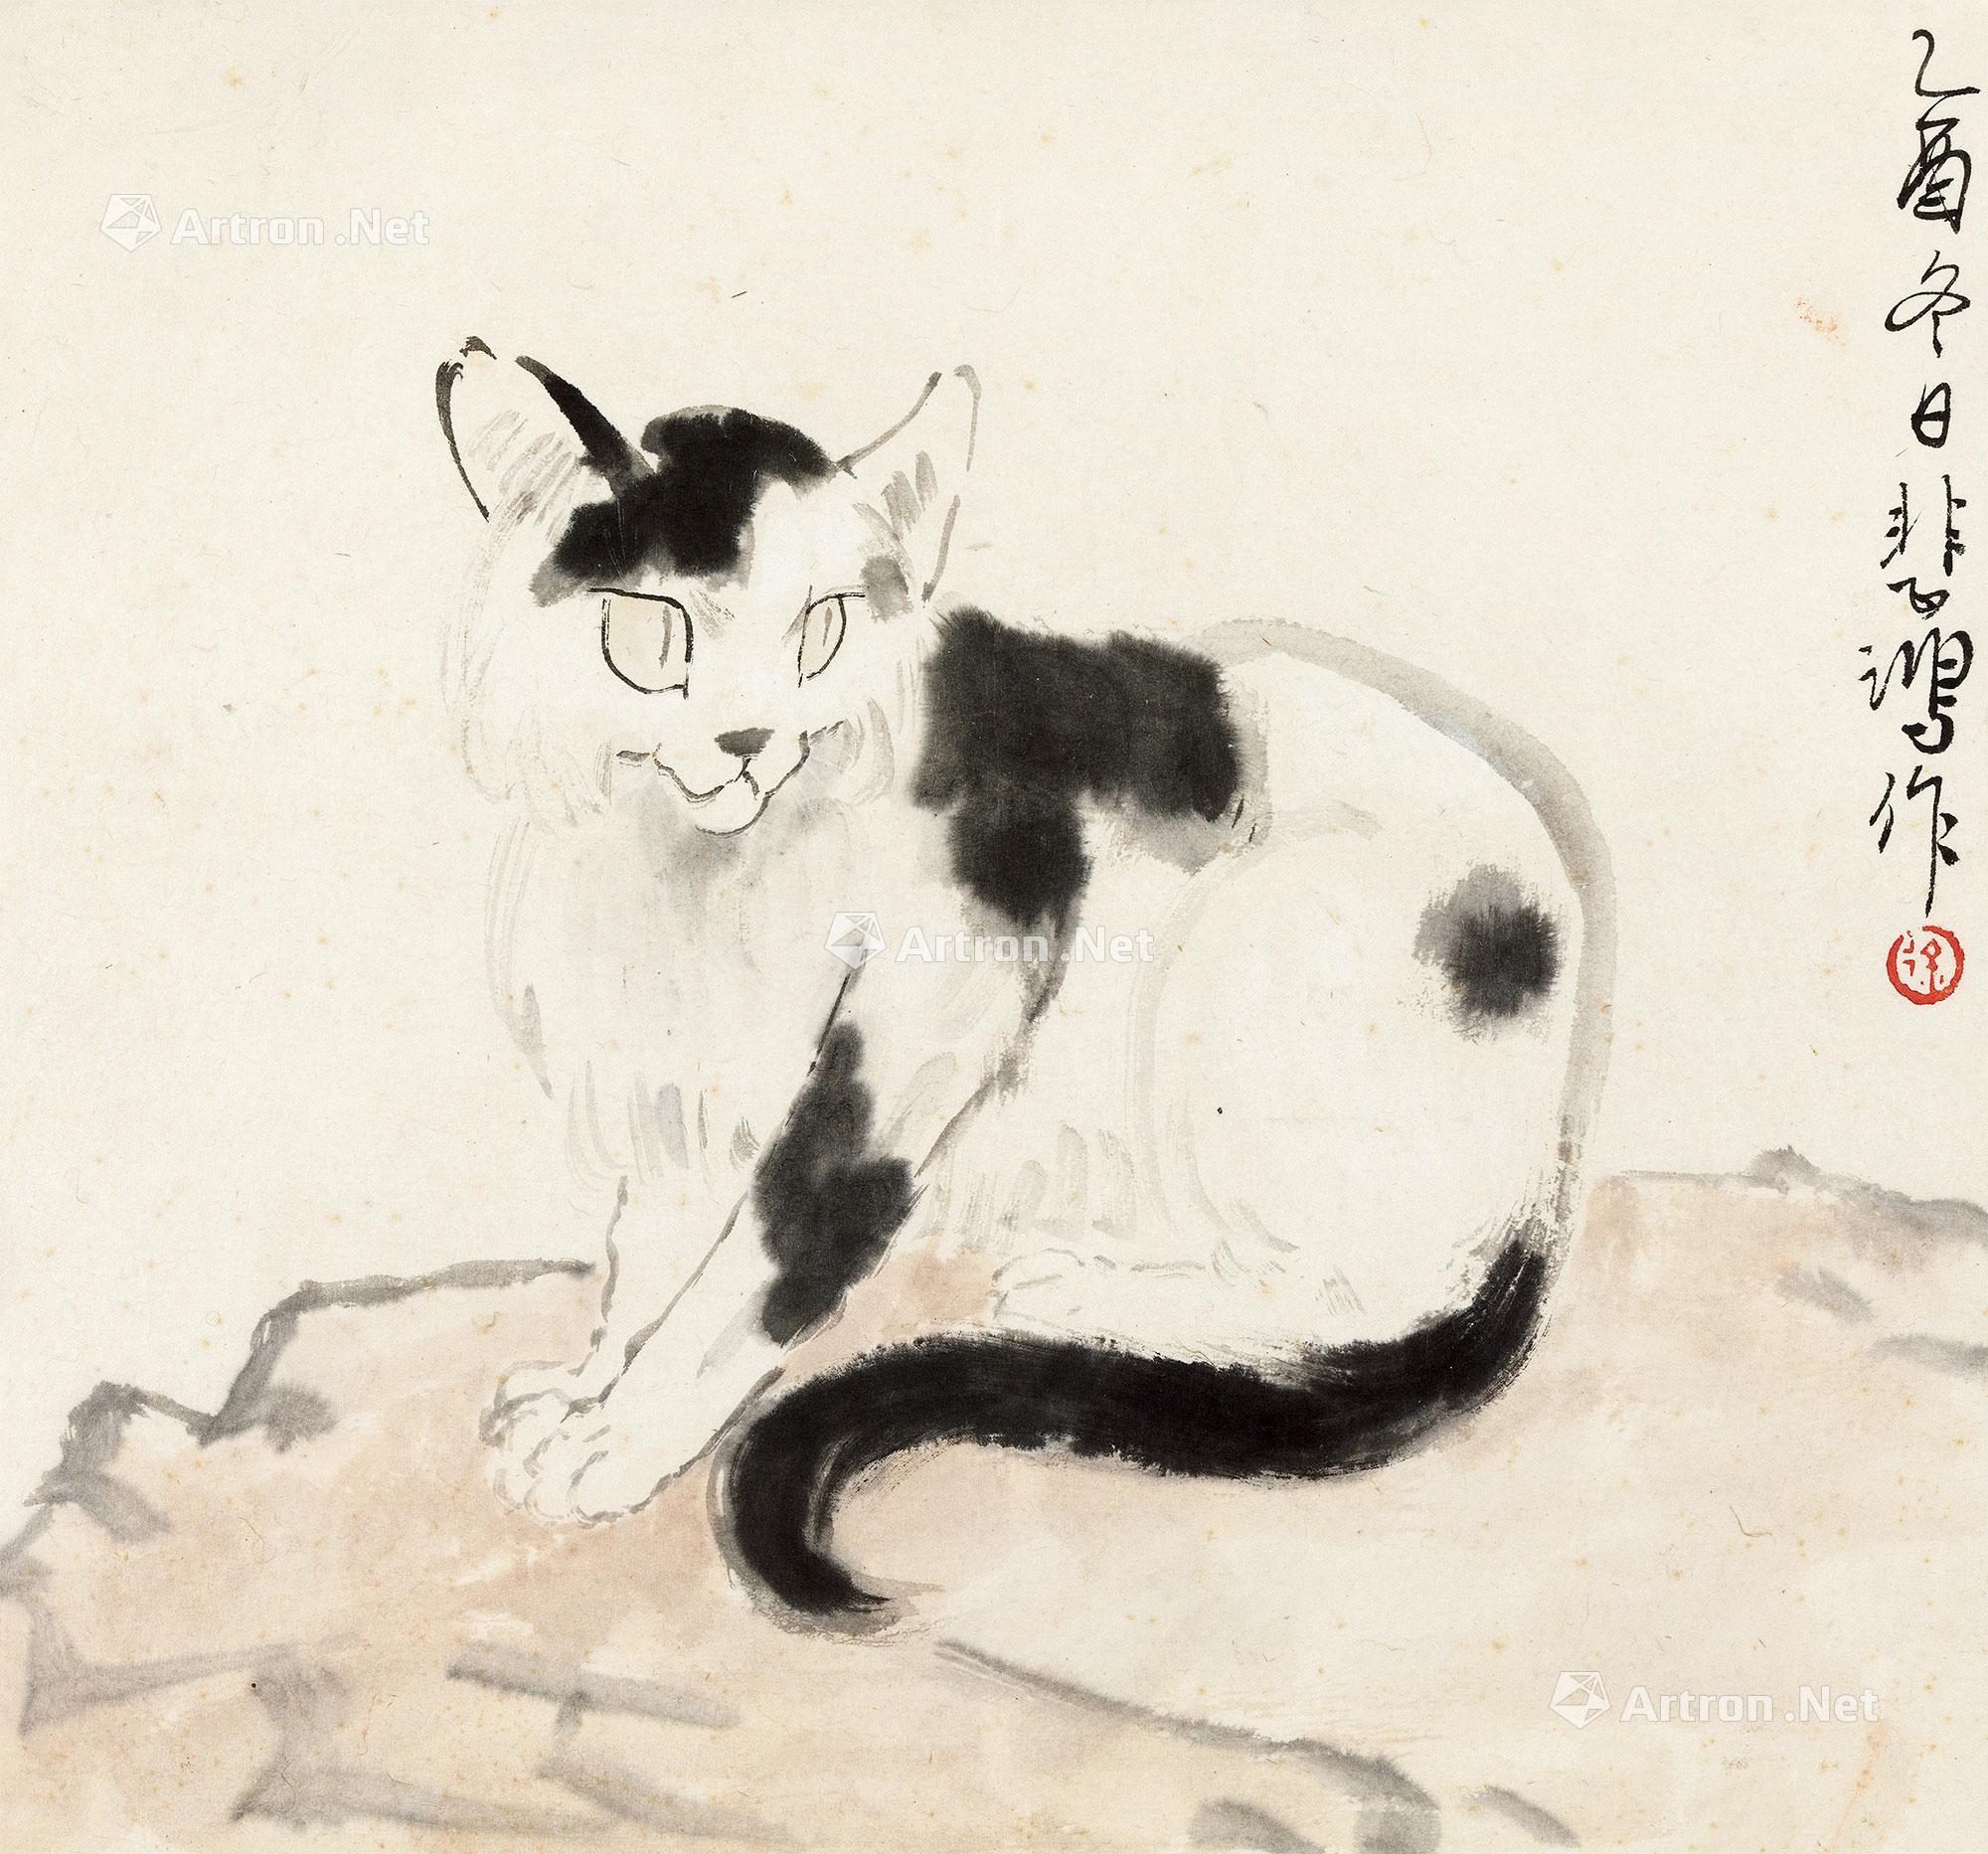 乙酉冬日悲鸿作
徐
Artron.Net
Artron.Net
Artron.Net